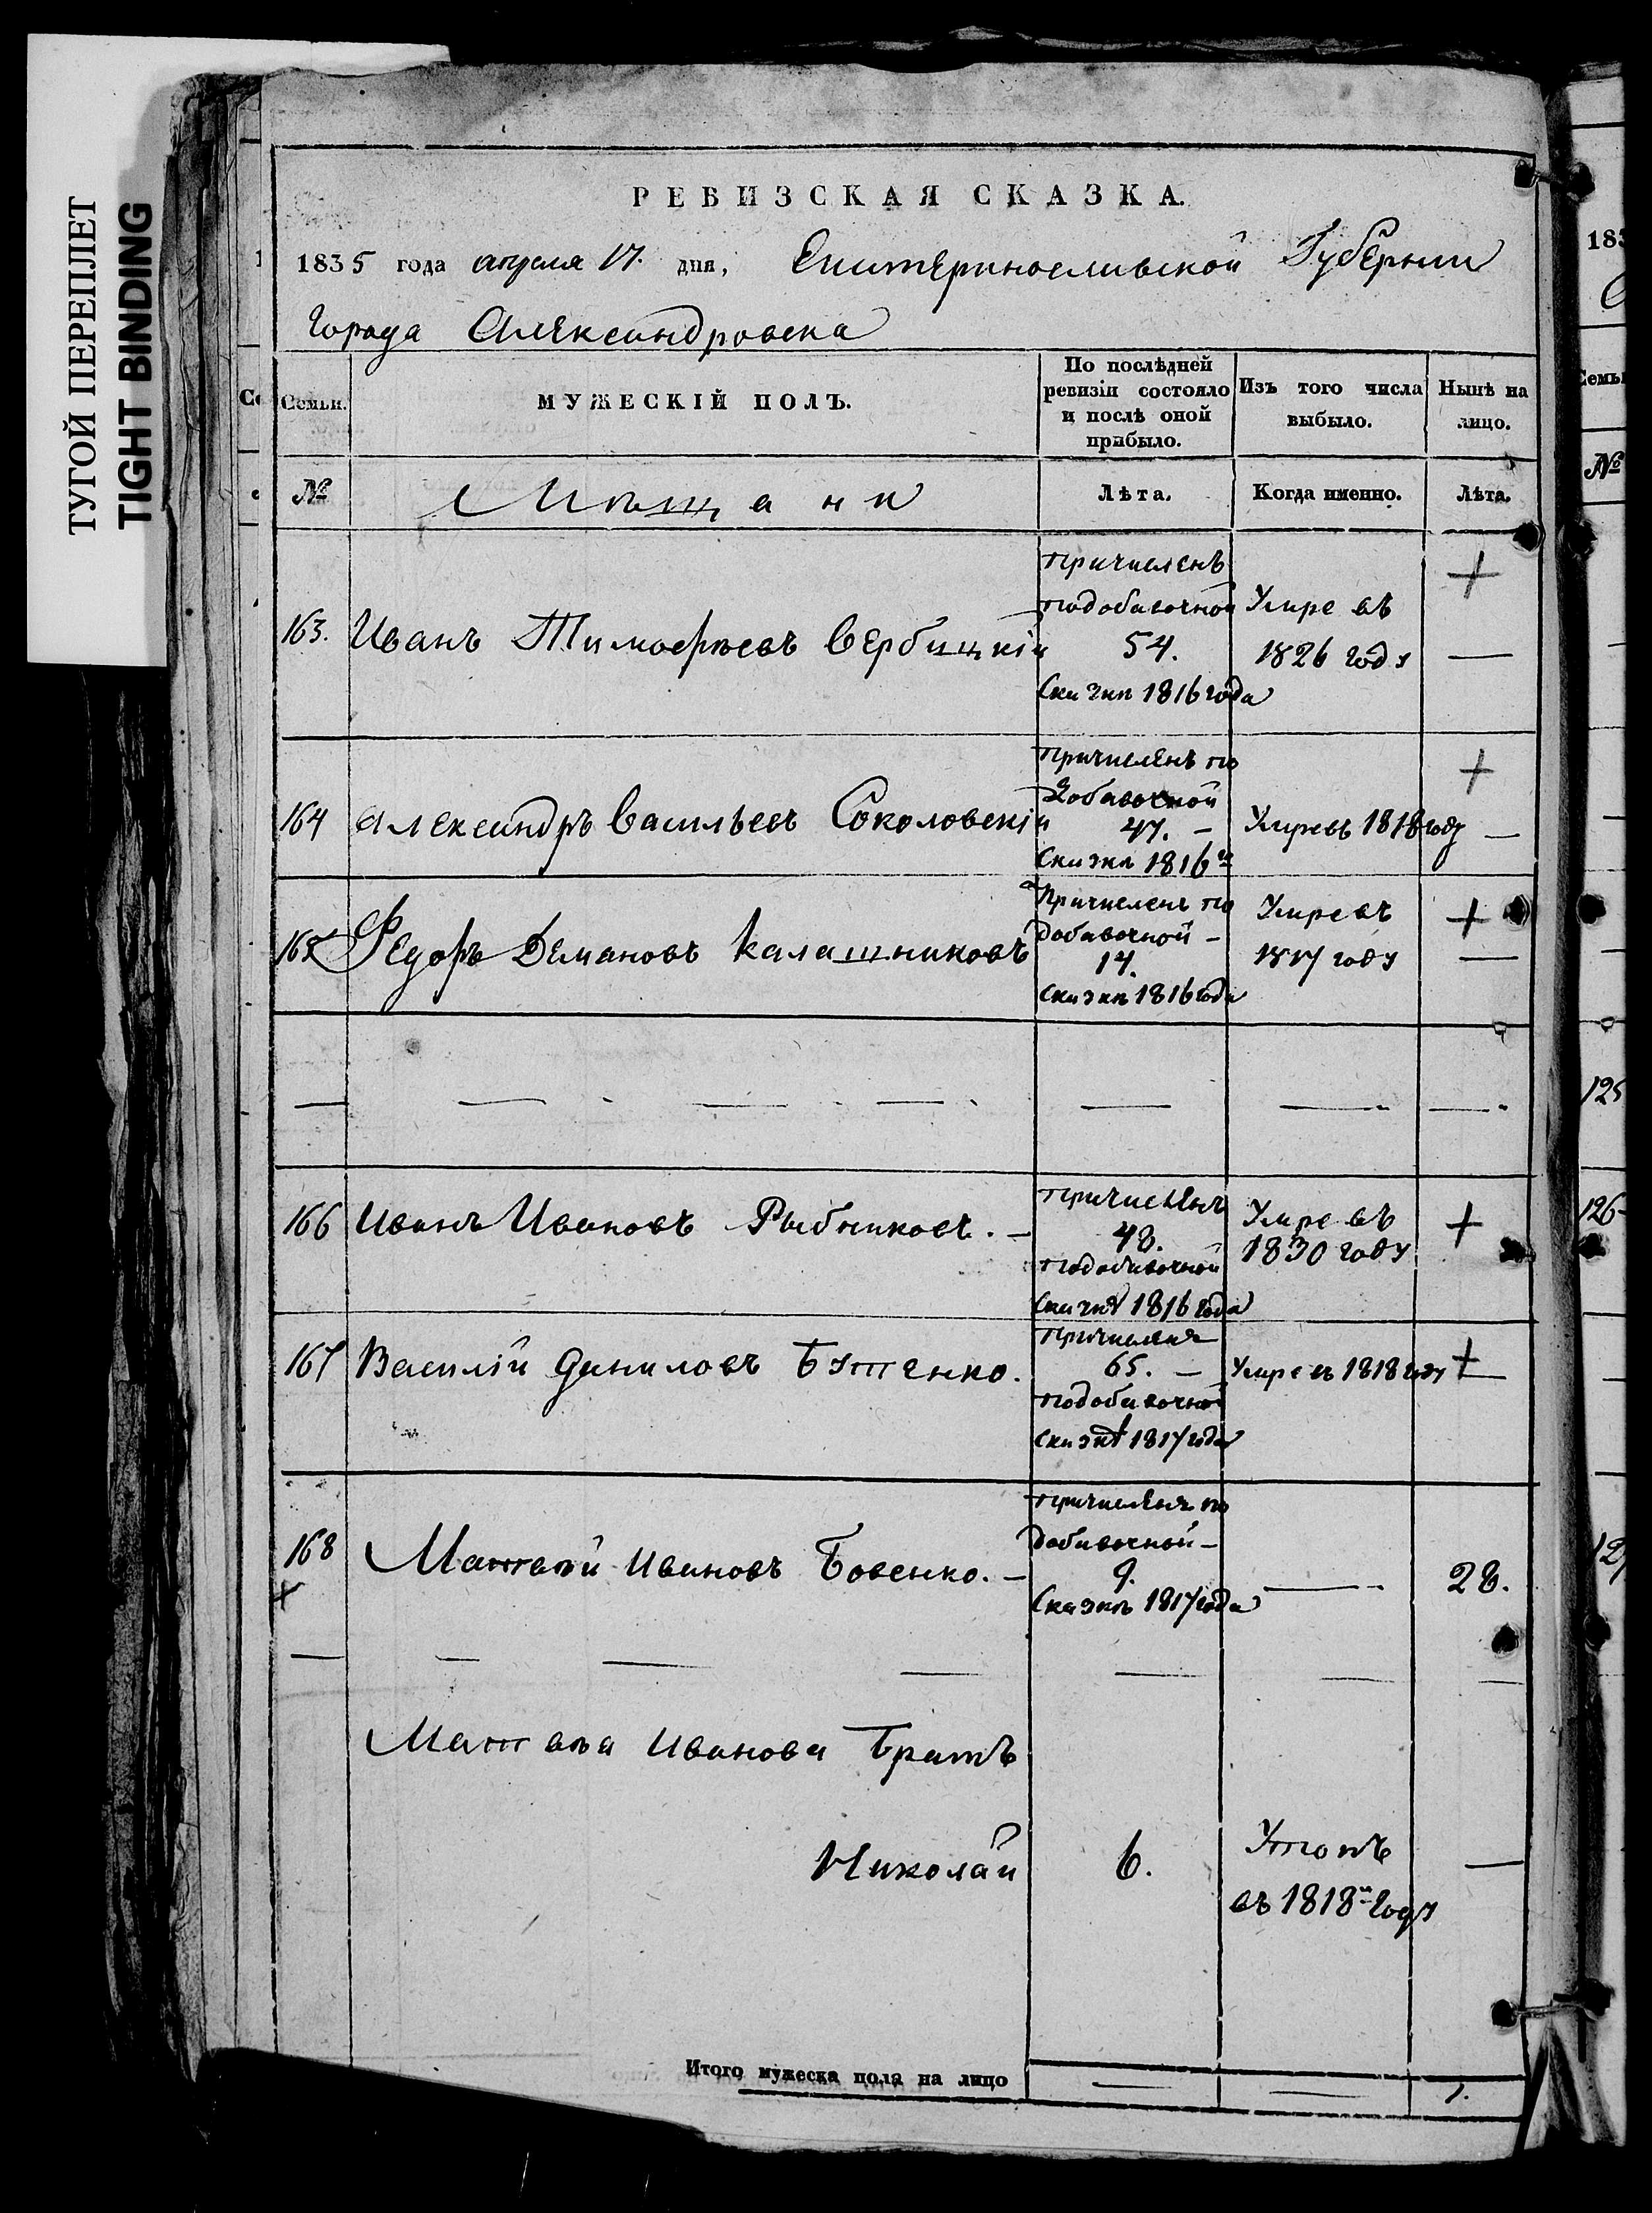 ТУГОЙ ПЕРЕПЛЕТ
TIGHT BINDING
РЕВИЗСКАЯ СКАЗКА.
1835 года апреля 17. дня, Екатеринославской Губернии
города Александровска
Семьи.
МУЖЕСКІЙ ПОЛЪ.
По послѣдней
ревизіи состояло
и послѣ оной
прибыло.
Изъ того числа
выбыло.
Нынѣ на
лицо.
№
Мѣщане
Лѣта.
Когда именно.
Лѣта.
163. Иванъ Тимофѣевъ Вербицкій
причисленъ
подобавочной
54.
сказкѣ 1816 года
Умре въ
1826 году
+
—
164 Александръ Васильевъ Соколовскій
причисленъ по
добавочной
47. —
сказкѣ 1816
Умре въ 1818 году
+
—
165 Федоръ Демановъ Калашниковъ
Причисленъ по
добавочной —
17.
сказкѣ 1816 года
Умре въ
1817 году
+
—
166 Иванъ Ивановъ Рыбниковъ. —
причисленъ
48.
подобавочной
сказкѣ 1816 года
Умре въ
1830 году
+
167 Василій Даниловъ Бутенко.
причисленъ
65. —
подобавочной
сказкѣ 1817 года
Умре въ 1818 году
+
—
168 Матвѣй Ивановъ Бовенко. —
+
причисленъ по
добавочной —
9.
сказкѣ 1817 года
—
28.
Матвѣя Иванова Братъ
Николай
6.
Утопъ
въ 1818 году
—
Итого мужеска пола на лицо
—
—
1.
183
Семьи
№
125
126
127